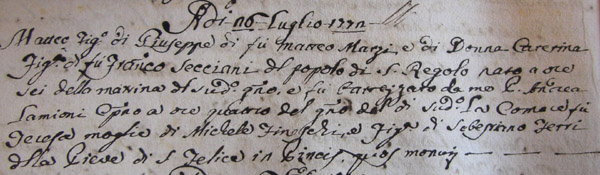 Adi 16 Luglio 1772
Matteo Fig.º di Giuseppe di fù Marco Marzi, e di Donna Caterina
Fig.ª di fù Franco Secciani del popolo di S. Regolo nato a ore
sei della matina di sud.º gno, e fù battezzato da me P. Andrea
Lamioni Cpno a ore quatro del gno del di sud.º La Comare fù
Teresa moglie di Michele Fineschi, e Fig.ª di Sebastiano Ferri
della Pieve di S. Felice in Pincis. quos monui